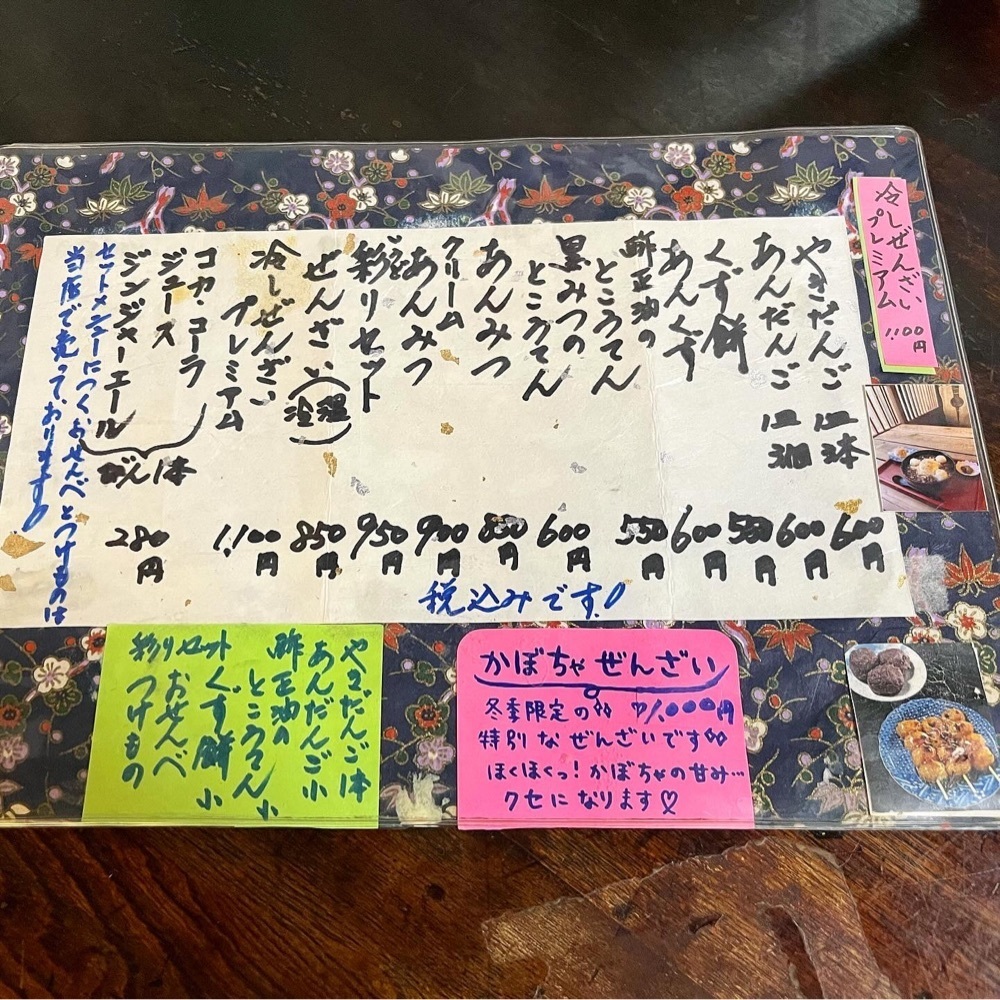 やきだんご 一皿 3本 600円
あんだんご 一皿 3個 600円
くず餅 550円
あんくず 600円
酢正油の
ところてん 550円
黒みつの
ところてん 600円
あんみつ 800円
クリーム
あんみつ 900円
彩りセット 950円
ぜんざい(冷温) 850円
冷しぜんざい
プレミアム 1,100円
コカ・コーラ
ジュース
ジンジャーエール
びん1本 280円
セットメニューにつくおせんべとつけものは
当店で売っております!
税込みです!
冷しぜんざい
プレミアム
1,100円
やきだんご1本
あんだんご小
酢正油の
ところてん小
くず餅小
彩りセット
おせんべ
つけもの
かぼちゃぜんざい
冬季限定の 1,000円
特別なぜんざいです
ほくほくっ!かぼちゃの甘み…
クセになります♡